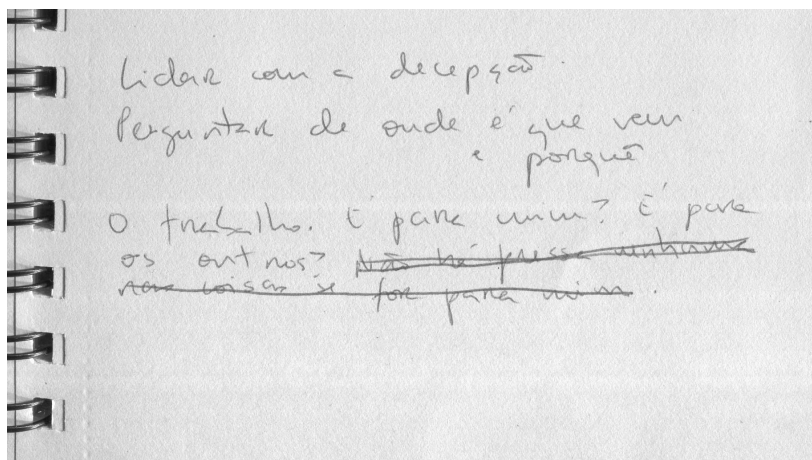 Lidar com a decepção.
Perguntar de onde é que vem
e porquê
O trabalho. É para mim? É para
os outros? Não há pressa nenhuma
nas coisas se for para mim.